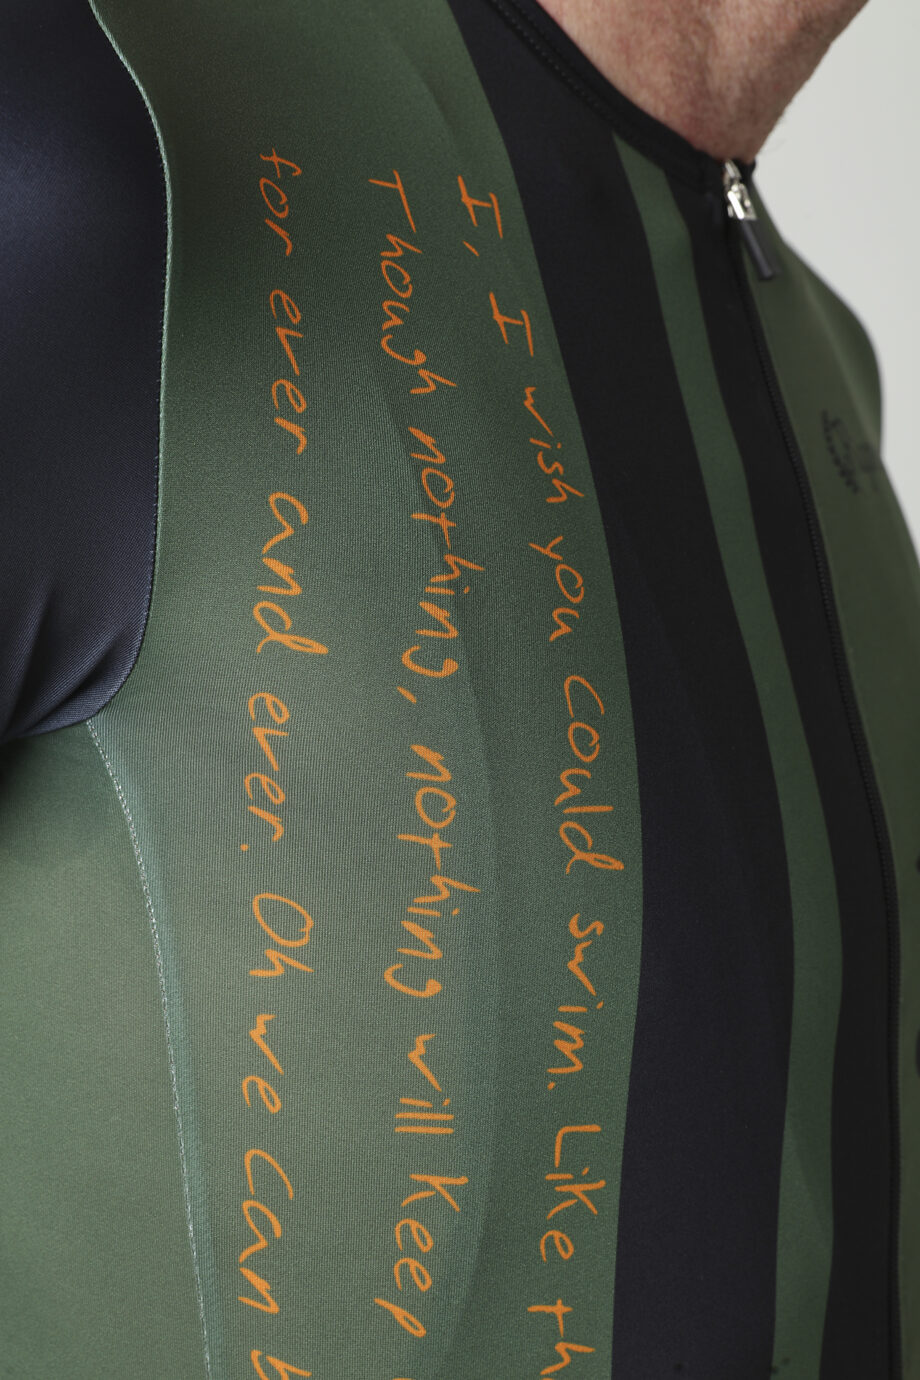 I, I wish you could swim. Like th
Though nothing, nothing will keep
for ever and ever. Oh we can b